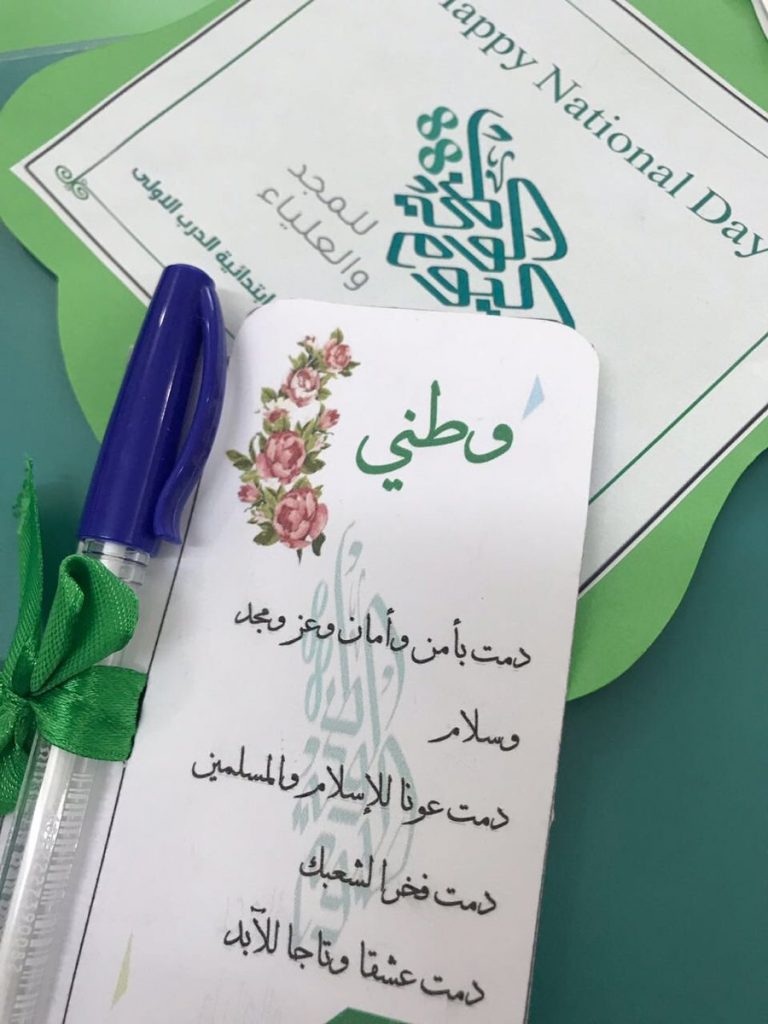 Happy National Day
للمجد
والعلياء
ابتدائية الدرب الاولى
وطني
دمت بأمن وأمان وعز ومجد
وسلام
دمت عونا للإسلام والمسلمين
دمت فخرا لشعبك
دمت عشقا وتاجا للآبد